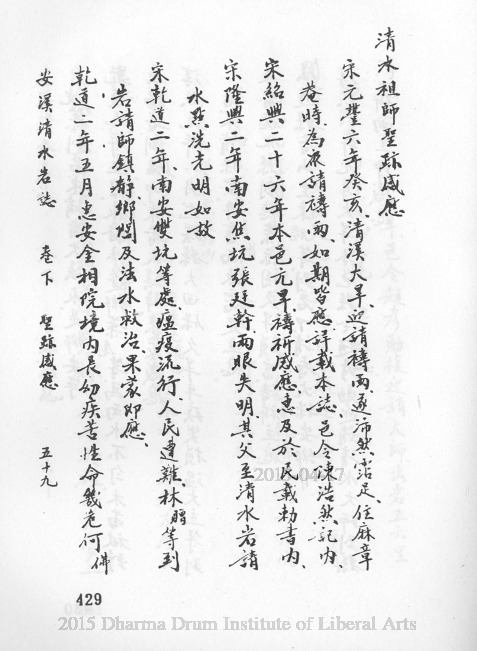 清水祖師聖跡感應
宋元豐六年癸亥、清溪大旱、迎請禱雨、遂沛然霑足、住麻章
菴時、為夜請禱雨、如期皆應詳載本誌、邑令陳浩然記內、
宋紹興二十六年本邑亢旱、禱祈感應、惠及於民載勅書內、
宋隆興二年、南安焦坑張廷幹兩眼失明、其父至清水岩請
水點洗光明如故
宋乾道二年、南安雙坑等處瘟疫流行人民遭難、林 等到
岩請師鎮靜鄉閭及法水救治、果蒙即應、
乾道二年五月惠安金相院境內長幼疾苦性命幾危何佛
安溪清水岩誌 卷下 聖跡感應 五十九
429
2015 Dharma Drum Institute of Liberal Arts